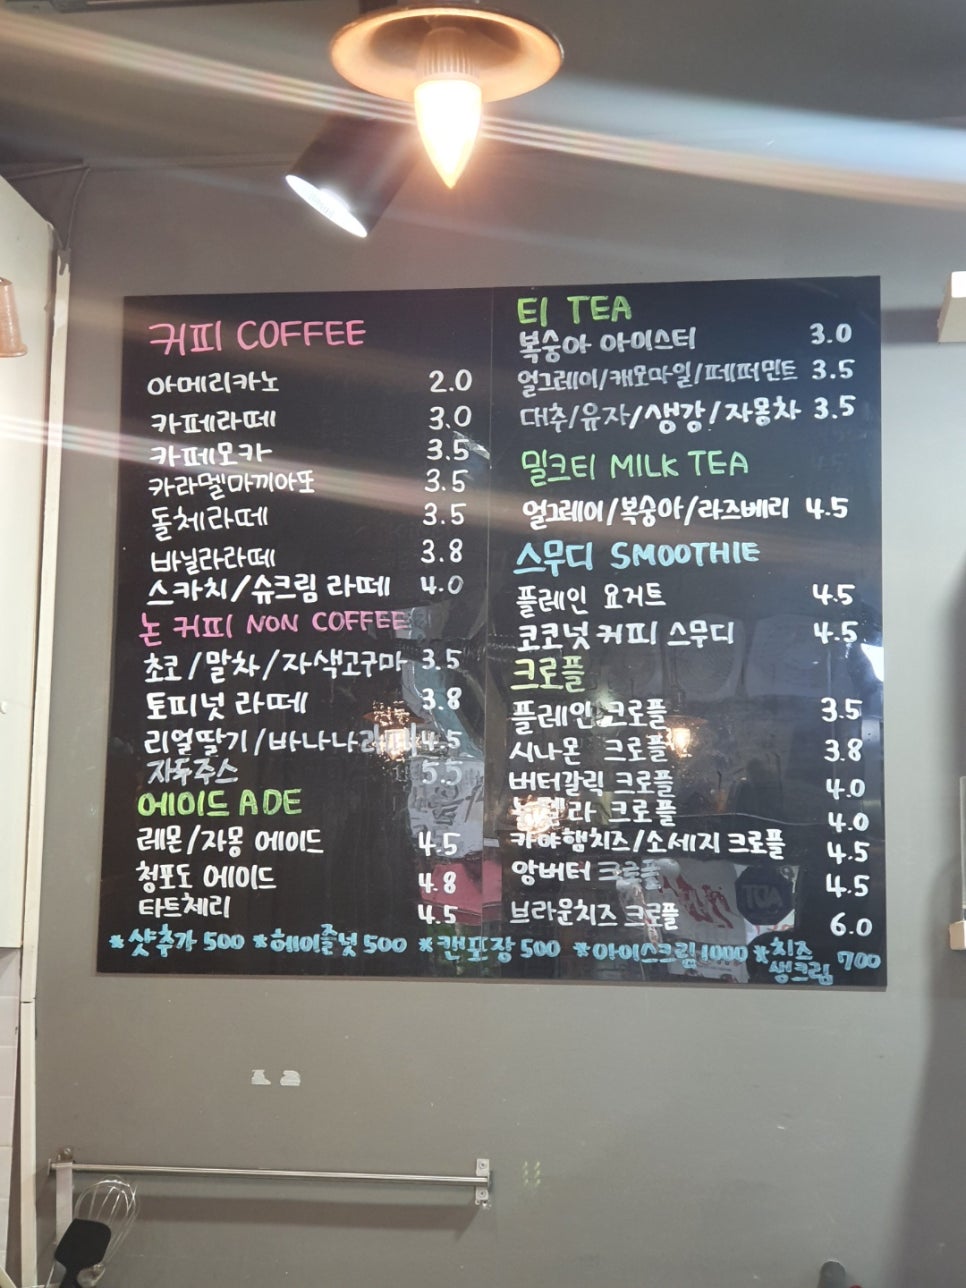 커피 COFFEE
아메리카노 2.0
카페라떼 3.0
카페모카 3.5
카라멜마끼아또 3.5
돌체라떼 3.5
바닐라라떼 3.8
스카치/슈크림 라떼 4.0
논 커피 NON COFFEE
초코/말차/자색고구마 3.5
토피넛 라떼 3.8
리얼딸기/바나나라떼 4.5
자두주스 5.5
에이드 ADE
레몬/자몽 에이드 4.5
청포도 에이드 4.8
타트체리 4.5
티 TEA
복숭아 아이스티 3.0
얼그레이/캐모마일/페퍼민트 3.5
대추/유자/생강/자몽차 3.5
밀크티 MILK TEA
얼그레이/복숭아/라즈베리 4.5
스무디 SMOOTHIE
플레인 요거트 4.5
코코넛 커피 스무디 4.5
크로플
플레인 크로플 3.5
시나몬 크로플 3.8
버터갈릭 크로플 4.0
누텔라 크로플 4.0
카야햄치즈/소세지 크로플 4.5
앙버터 크로플 4.5
브라운치즈 크로플 6.0
*샷추가 500 *헤이즐넛 500 *캔포장 500 *아이스크림 1000 *치즈 생크림 700